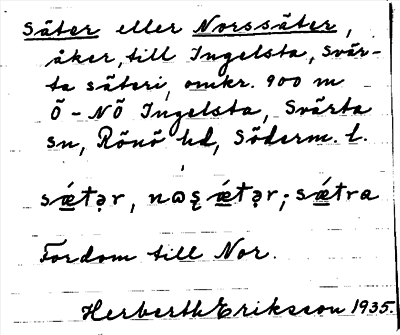 Säter eller Norssäter,
åker, till Ingelsta, Svär-
ta säteri, omkr. 900 m
Ö-NÖ Ingelsta, Svärta
sn, Rönö hd, Söderm. l.
sǽtər, ; sǽtra
Fordom till Nor.
Herberth Eriksson 1935.